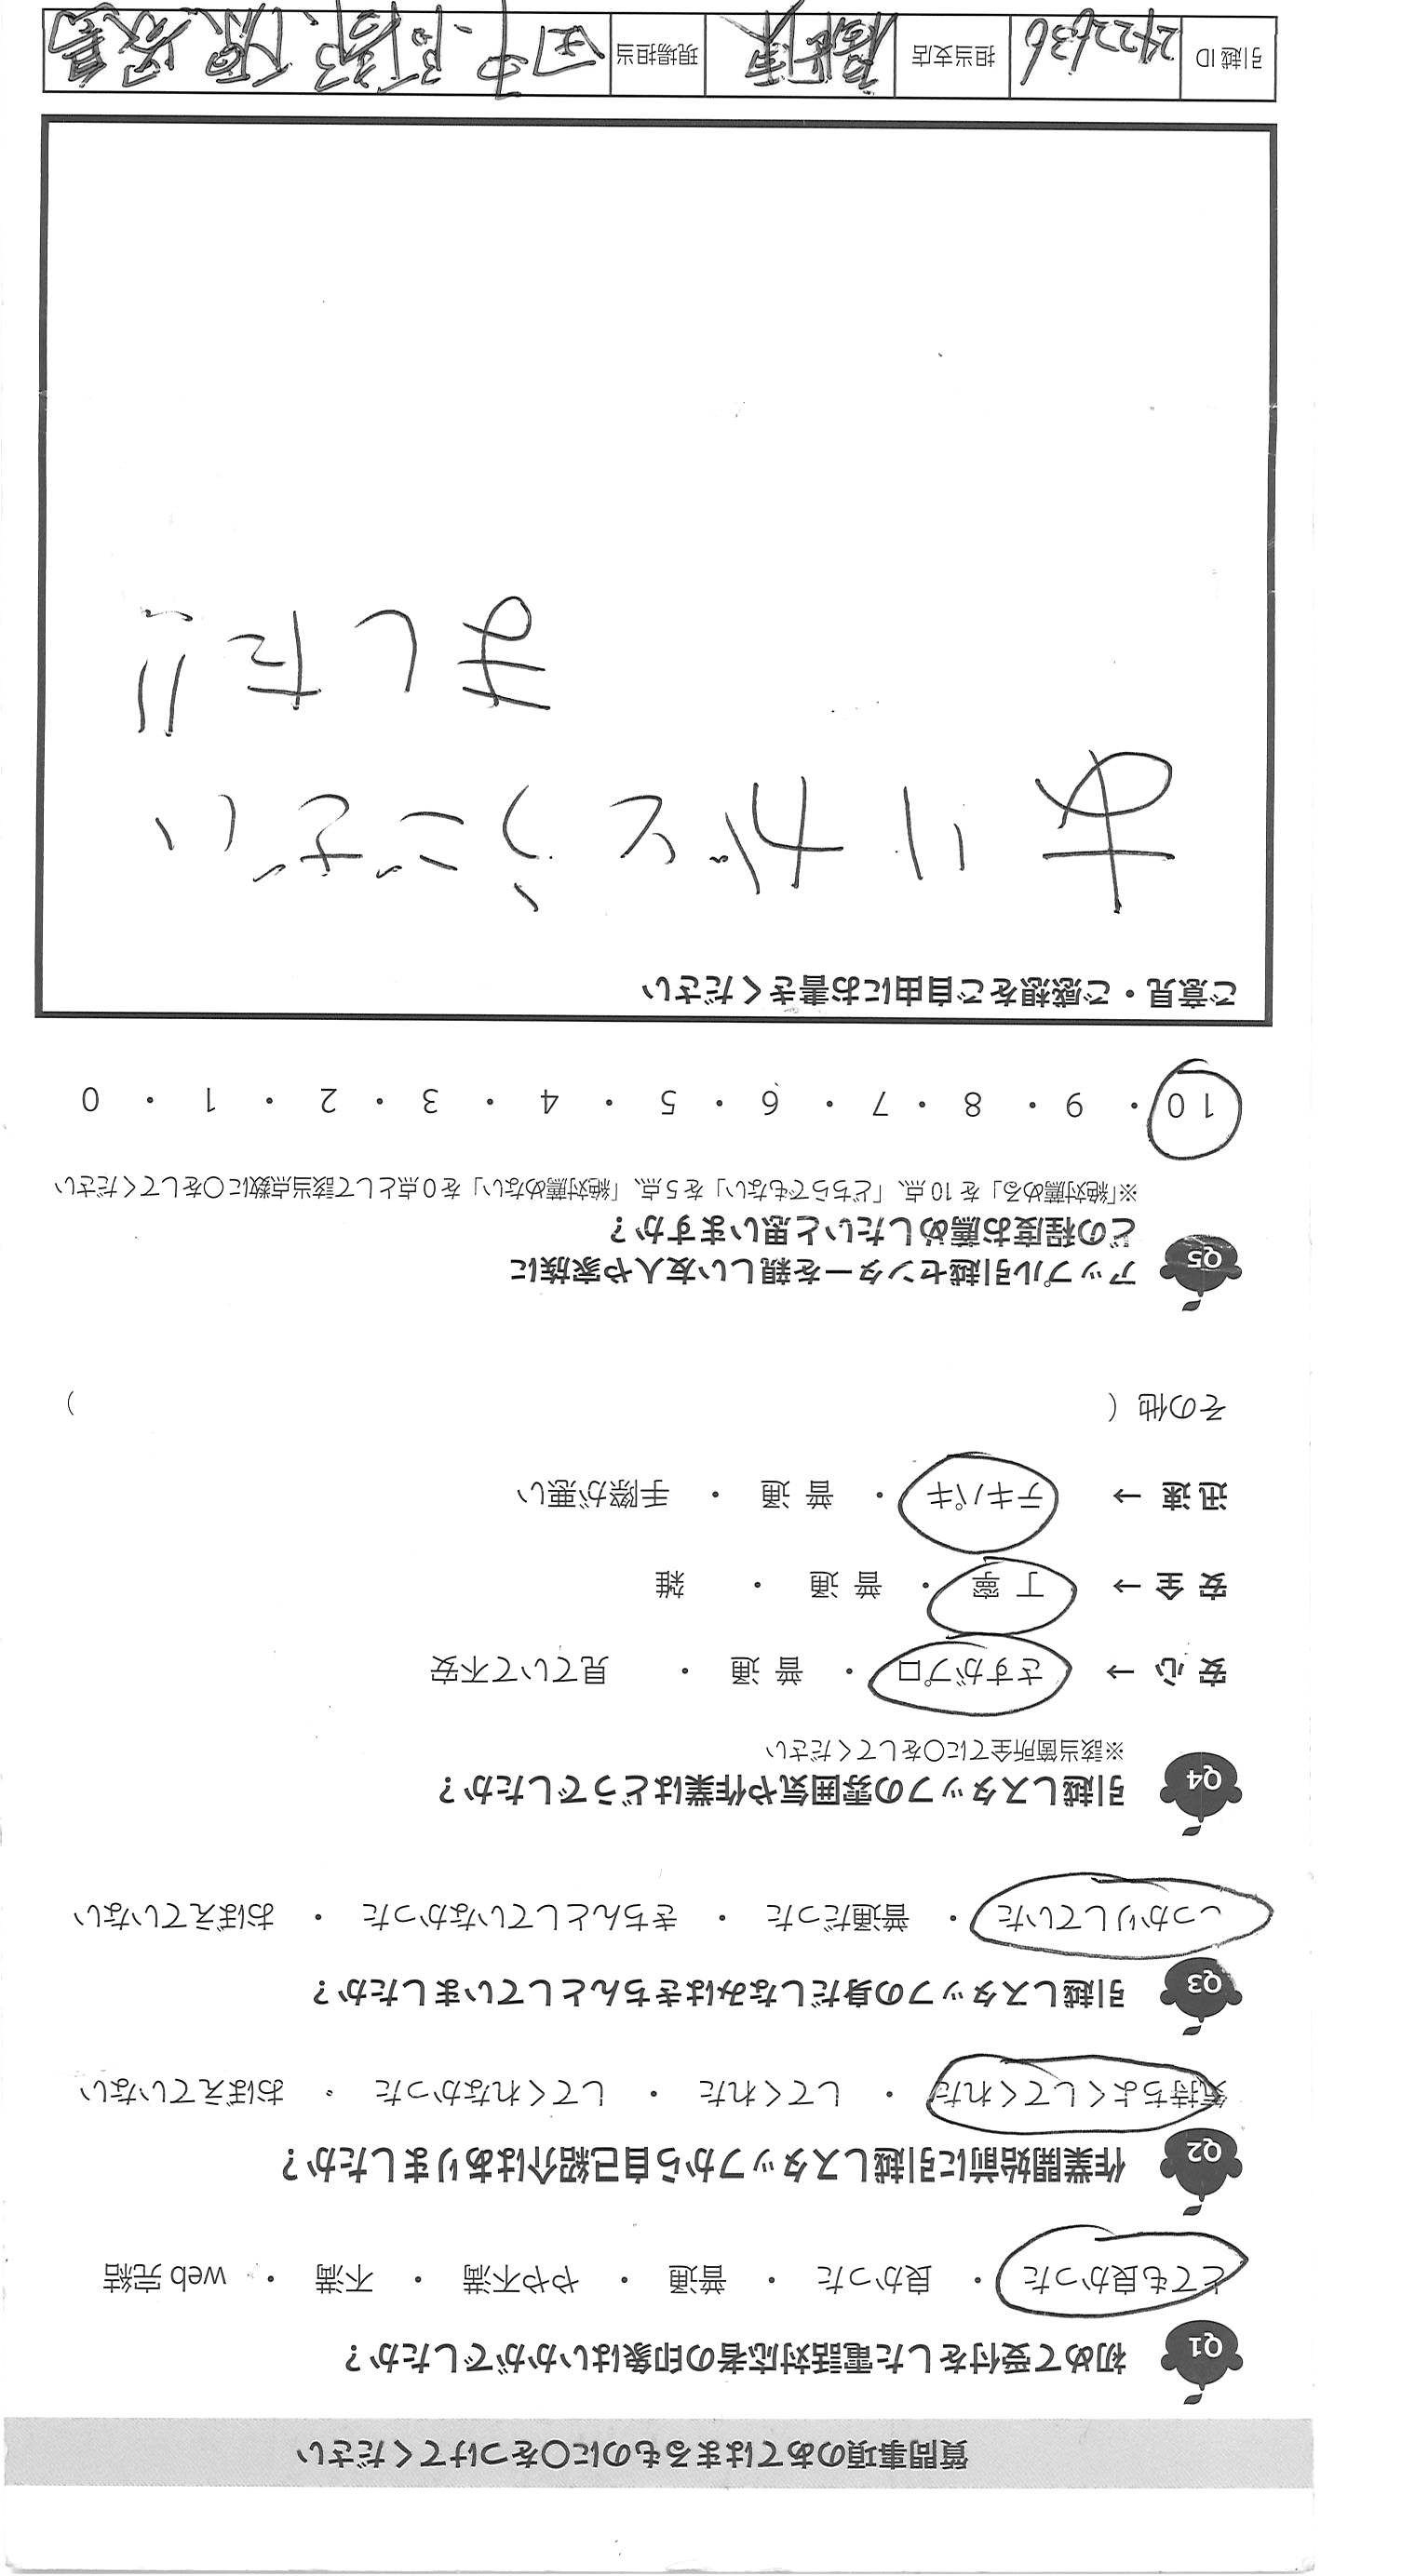 質問事項のあてはまるものに○をつけてください
Q1 初めて受付をした電話対応者の印象はいかがでしたか？
とても良かった ・ 良かった ・ 普通 ・ やや不満 ・ 不満 ・ web 完結
Q2 作業開始前に引越しスタッフから自己紹介はありましたか？
気持ちよくしてくれた ・ してくれた ・ してくれなかった ・ おぼえていない
Q3 引越しスタッフの身だしなみはきちんとしていましたか？
しっかりしていた ・ 普通だった ・ きちんとしていなかった ・ おぼえていない
Q4 引越しスタッフの雰囲気や作業はどうでしたか？
※該当箇所全てに○をしてください
安 心 → さすがプロ ・ 普 通 ・ 見ていて不安
安 全 → 丁 寧 ・ 普 通 ・ 雑
迅 速 → テキパキ ・ 普 通 ・ 手際が悪い
その他 （ ）
Q5 アップル引越センターを親しい友人や家族に
どの程度お薦めしたいと思いますか？
※「絶対薦める」を 10 点、「どちらでもない」を 5 点、「絶対薦めない」を 0 点として該当点数に○をしてください
10 ・ 9 ・ 8 ・ 7 ・ 6 ・ 5 ・ 4 ・ 3 ・ 2 ・ 1 ・ 0
ご意見・ご感想をご自由にお書きください
ありがとうござい
ました!!
引越 ID 2422636 担当支店 現場担当 田中、